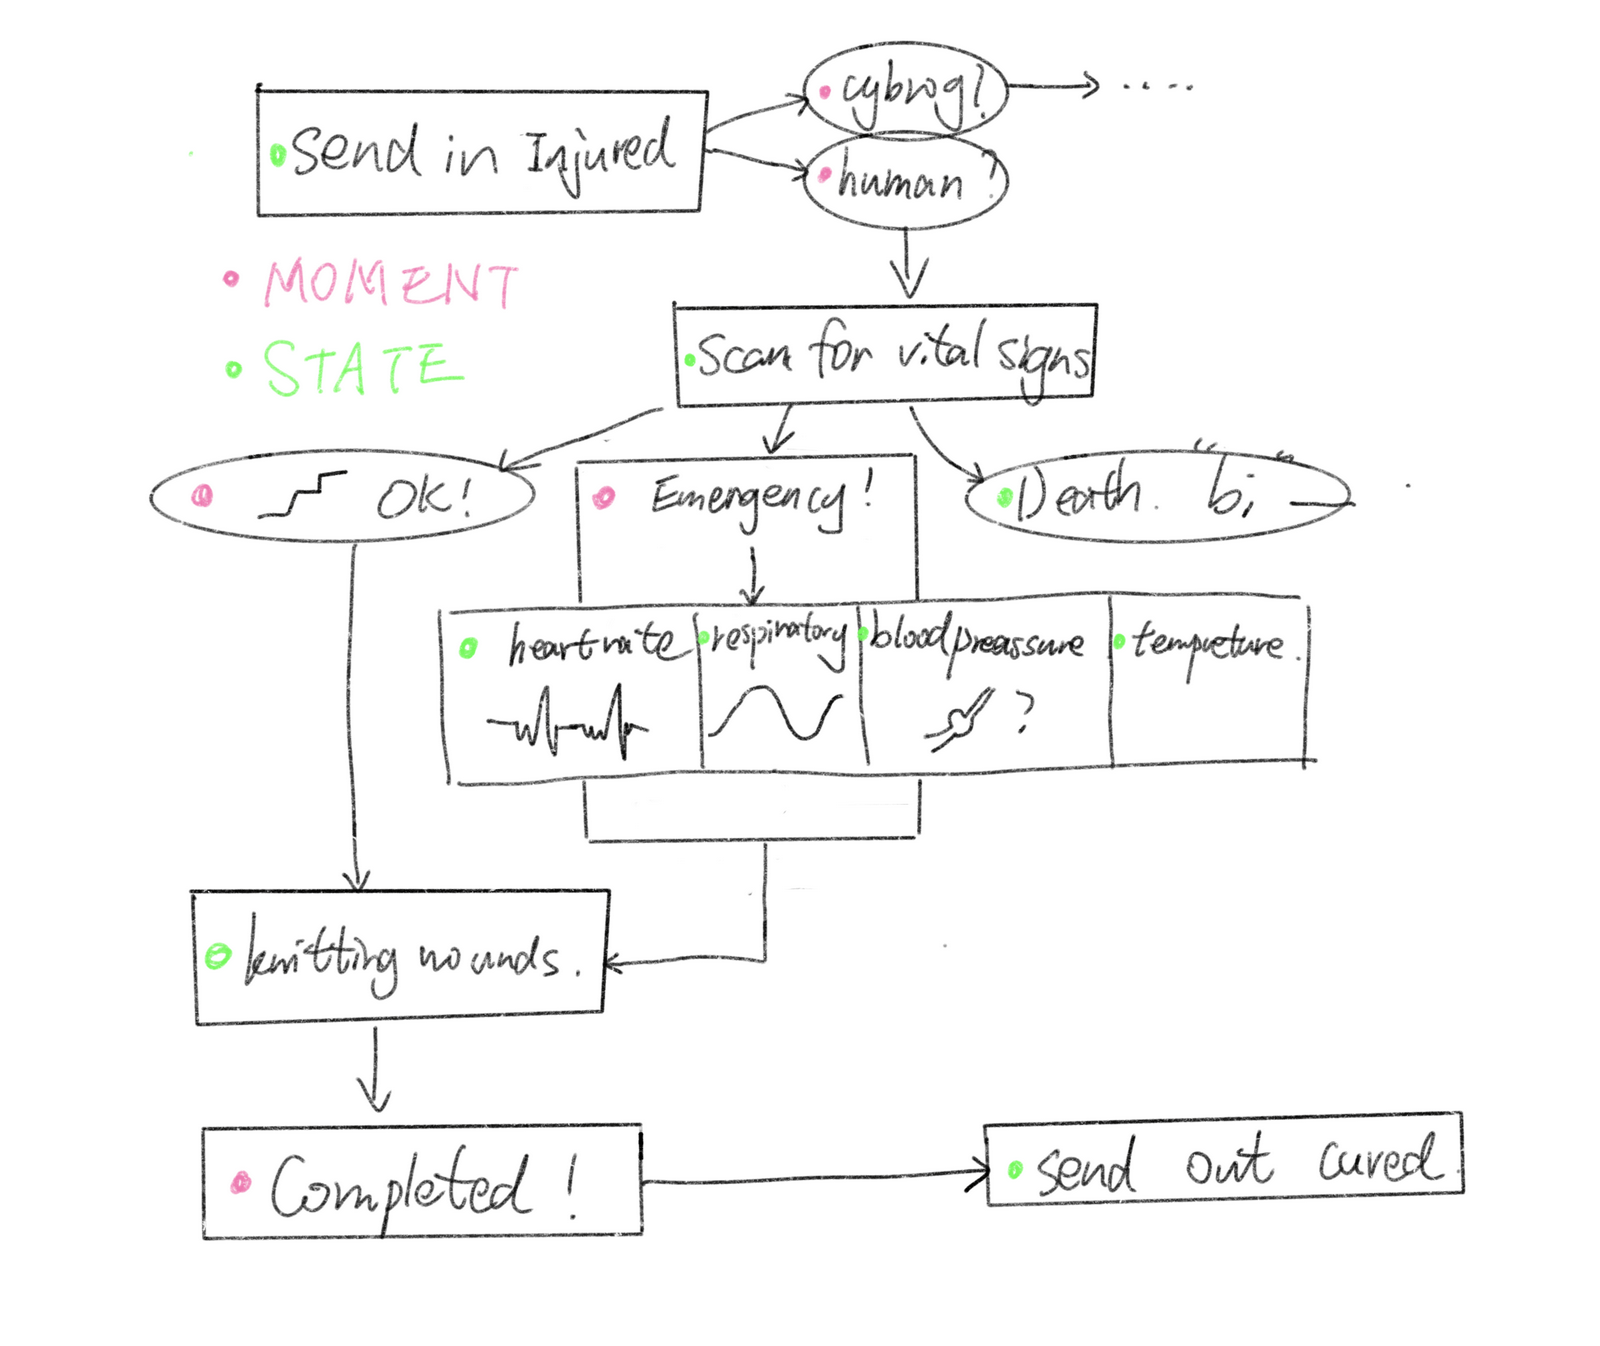 cybrog?
.....
Send in Injured
human?
MOMENT
STATE
Scan for vital signs
OK!
Emergency!
Death. "bi —"
heartrate
respiratory
bloodpreassure
?
knitting wounds.
Completed!
send out cured.